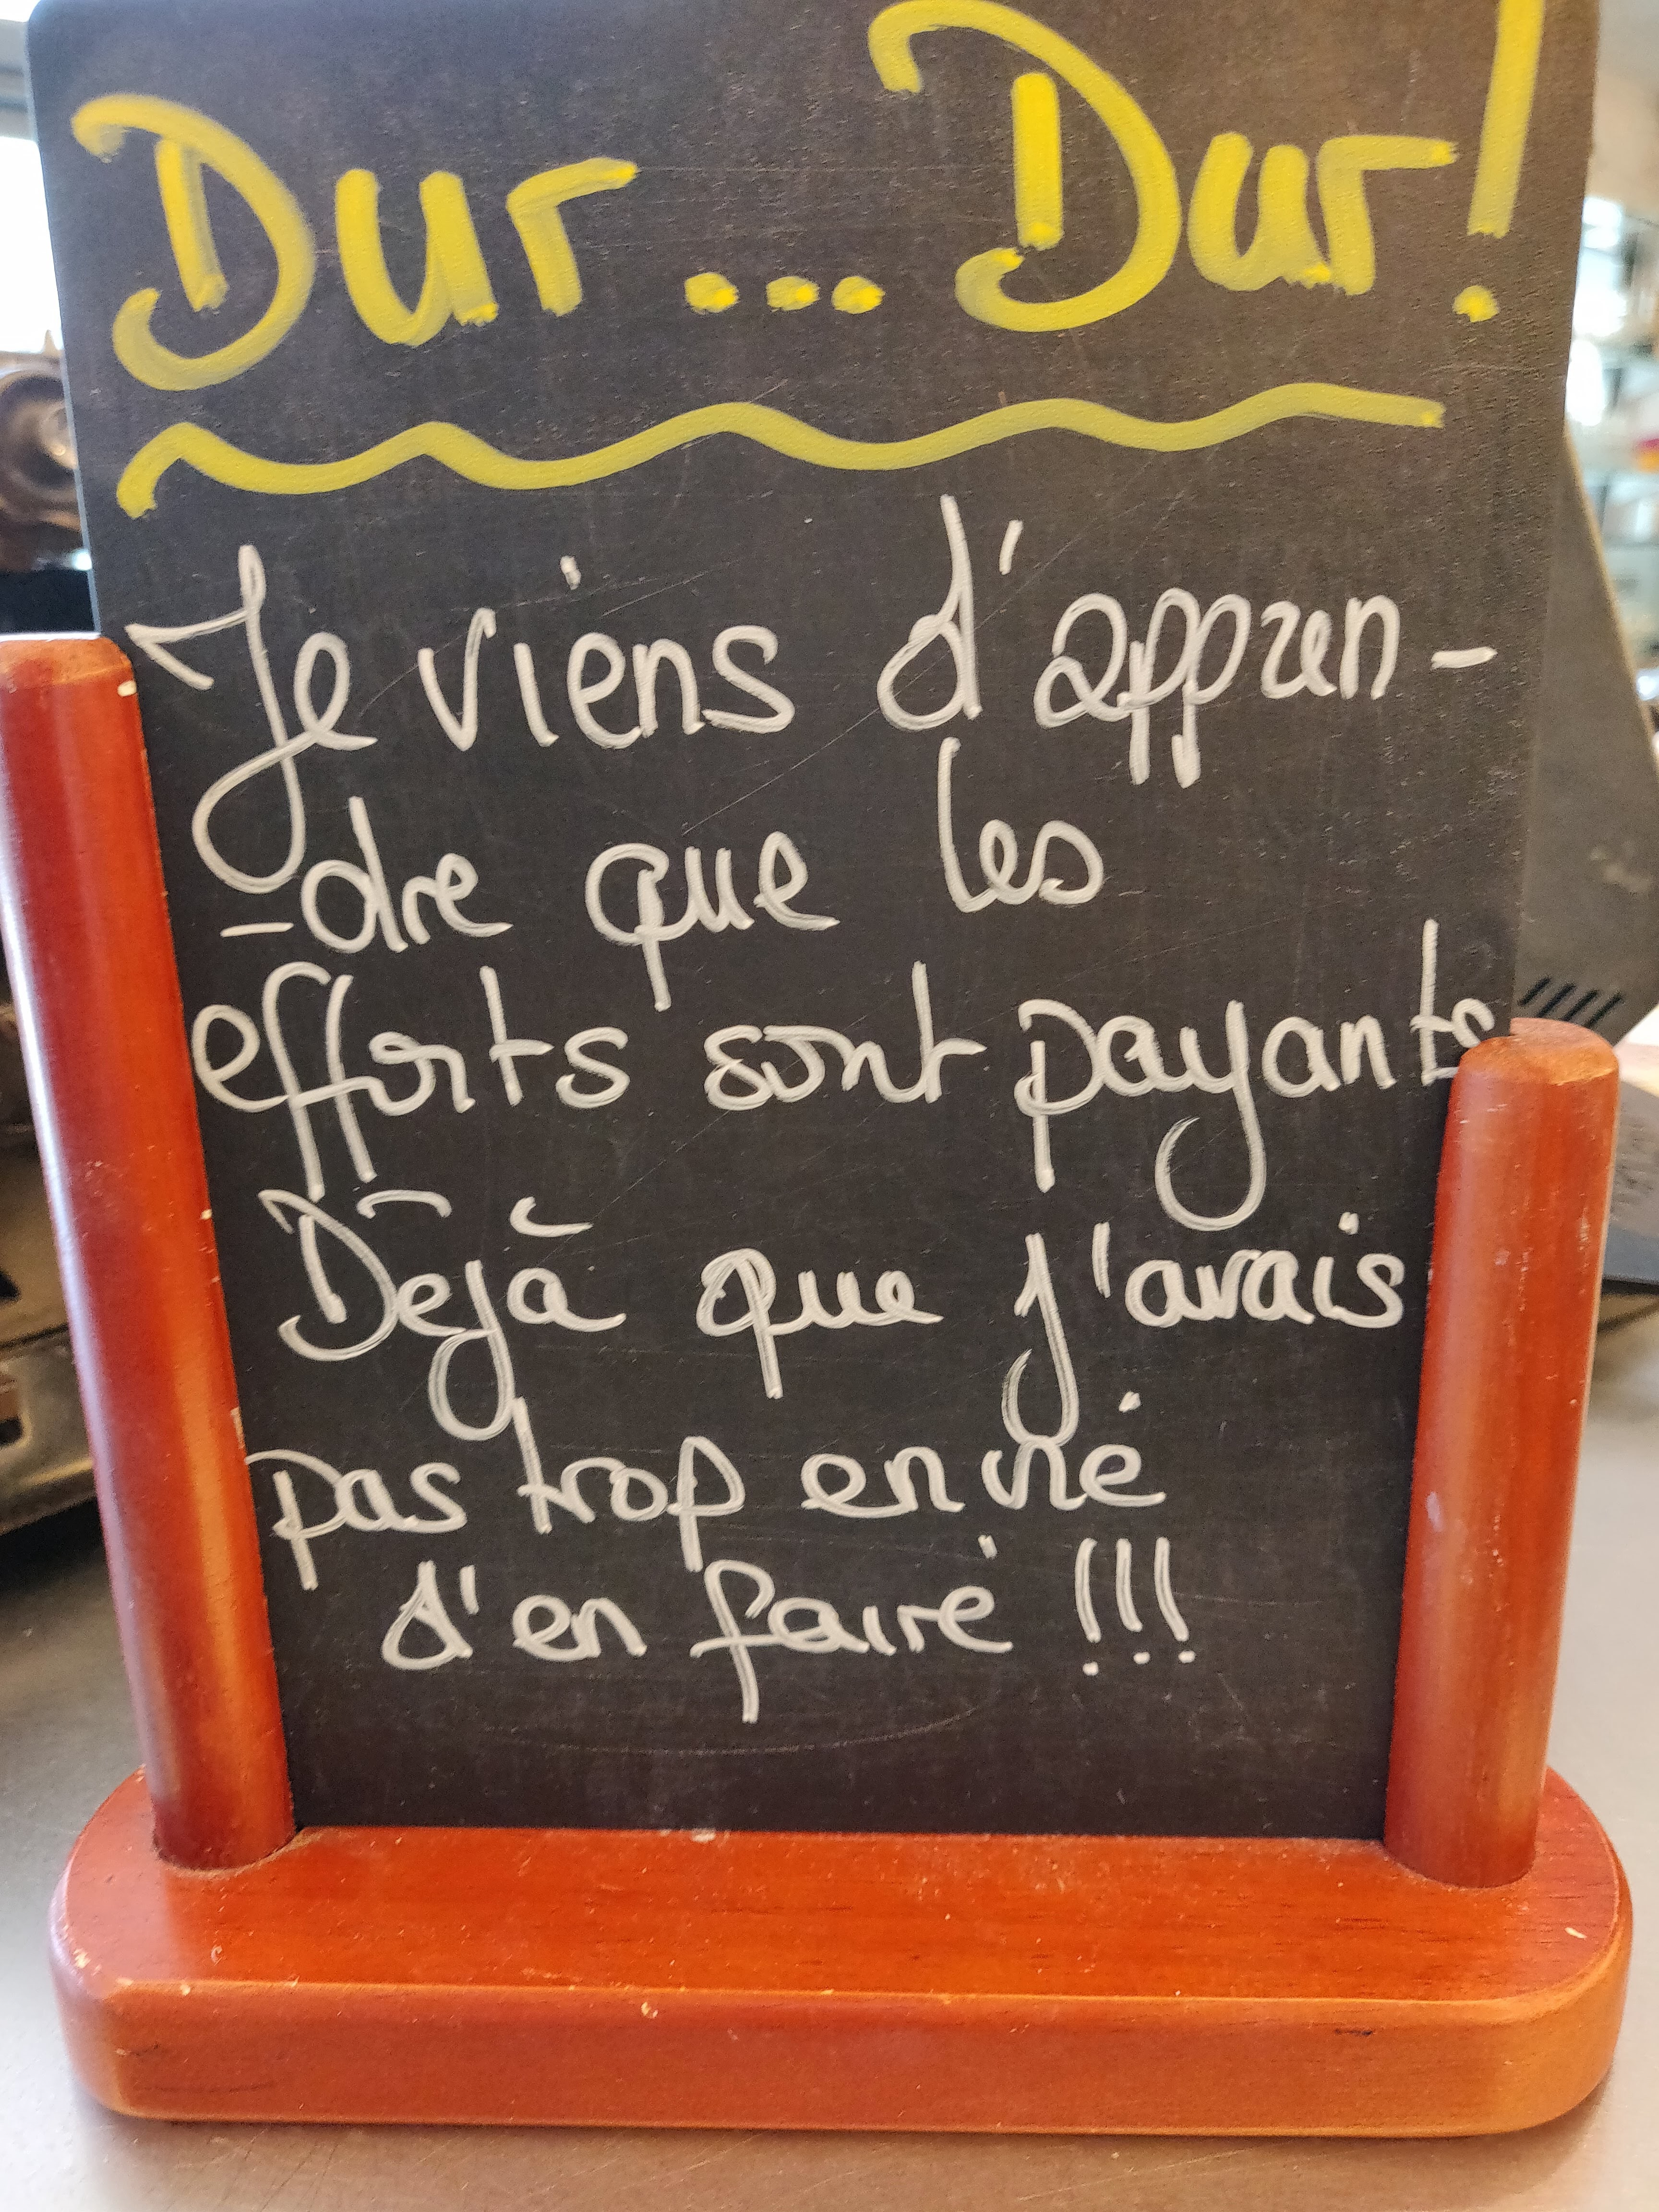 Dur... Dur!
Je viens d'appren-
-dre que les
efforts sont payants
Déjà que j'avais
pas trop envie
d'en faire !!!